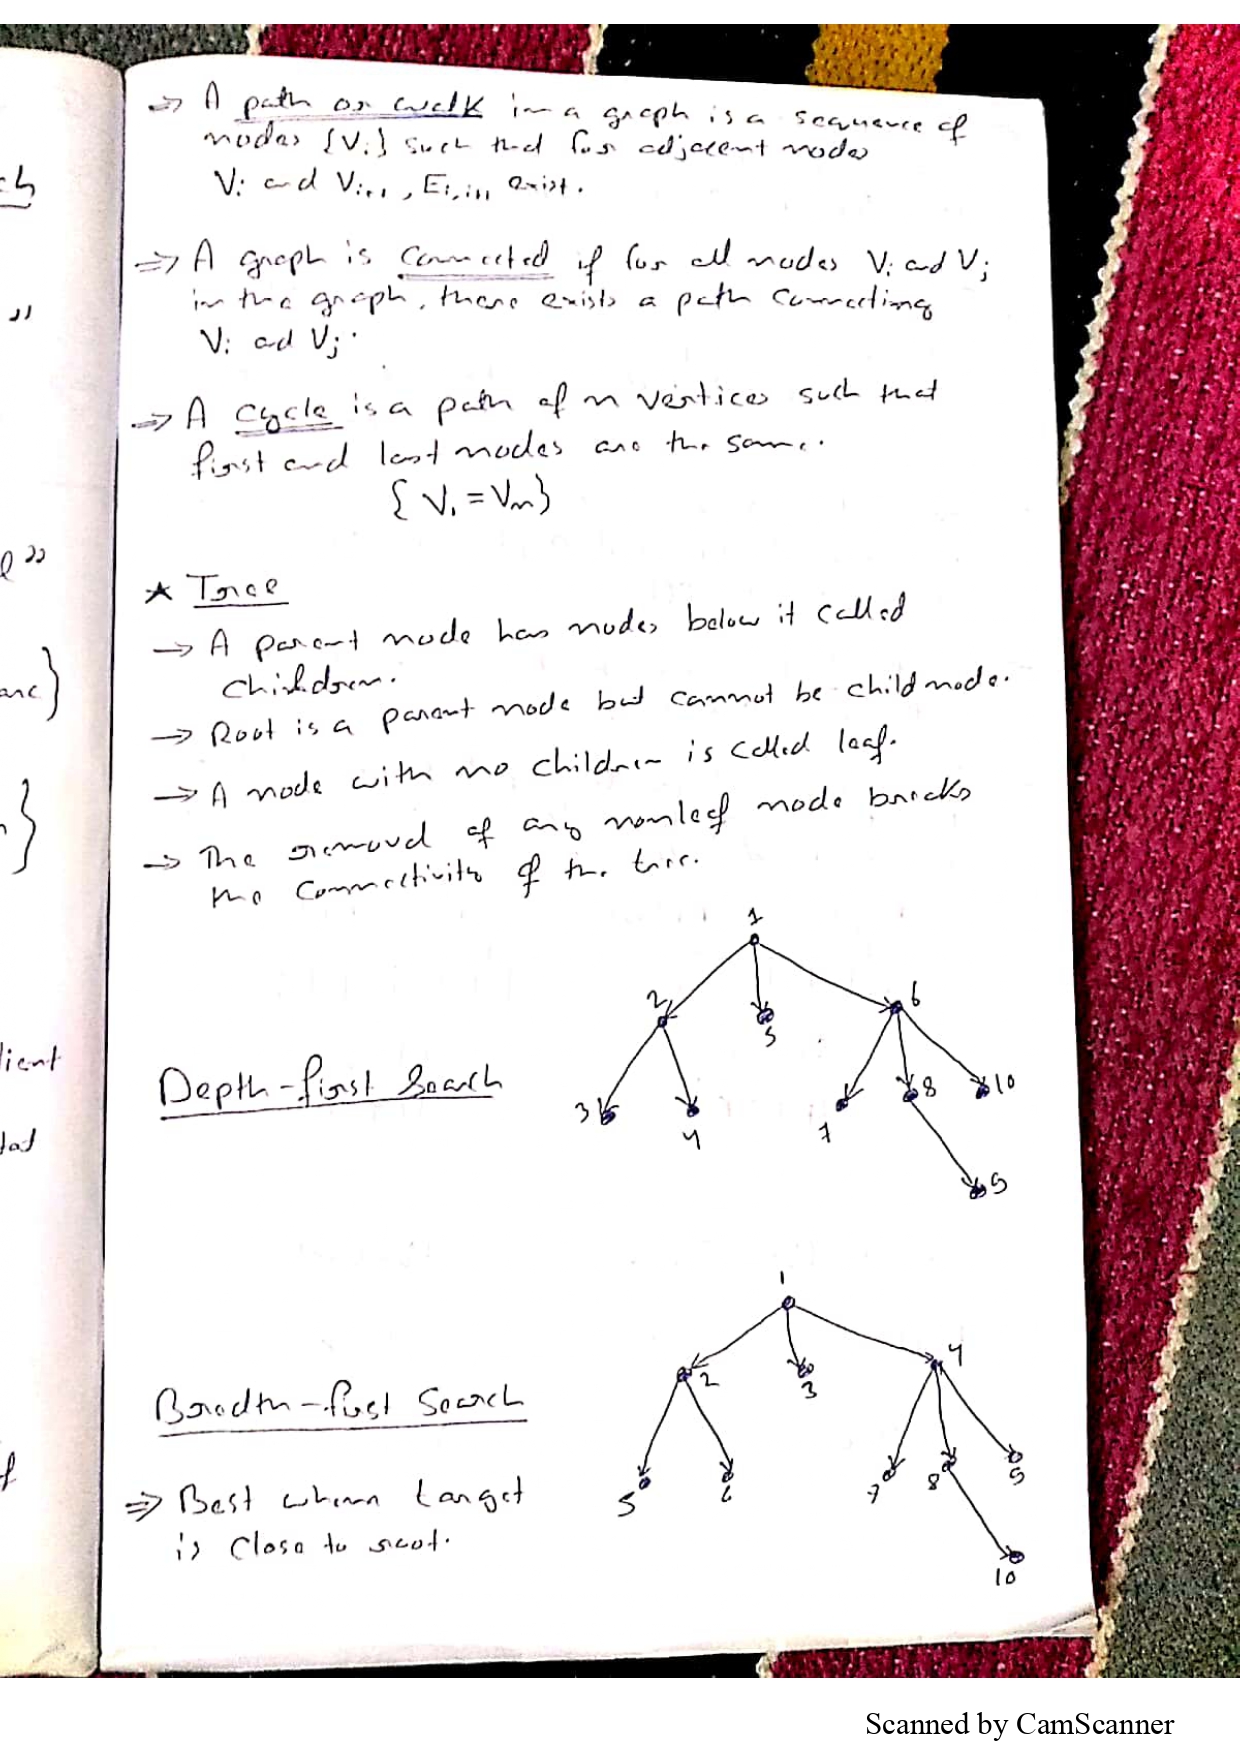 ⇒ A path or walk in a graph is a sequence of
nodes {Vi} such that for adjacent nodes
Vi and Vi+1, Ei,i+1 exist.
⇒ A graph is connected if for all nodes Vi and Vj
in the graph, there exists a path connecting
Vi ad Vj.
⇒ A cycle is a path of n vertices such that
first and last nodes are the same.
{V1 = Vn}
★ Tree
→ A parent node has nodes below it called
children.
→ Root is a parent node but cannot be child node.
→ A node with no children is called leaf.
→ The removal of any nonleaf node breaks
the connectivity of the tree.
1
2
5
6
Depth-first Search
3
4
7
8
10
9
1
2
3
4
Breadth-first Search
5
6
7
8
9
10
⇒ Best when target
is close to root.
ch
"
l"
anc}
}
dient
dat
f
Scanned by CamScanner